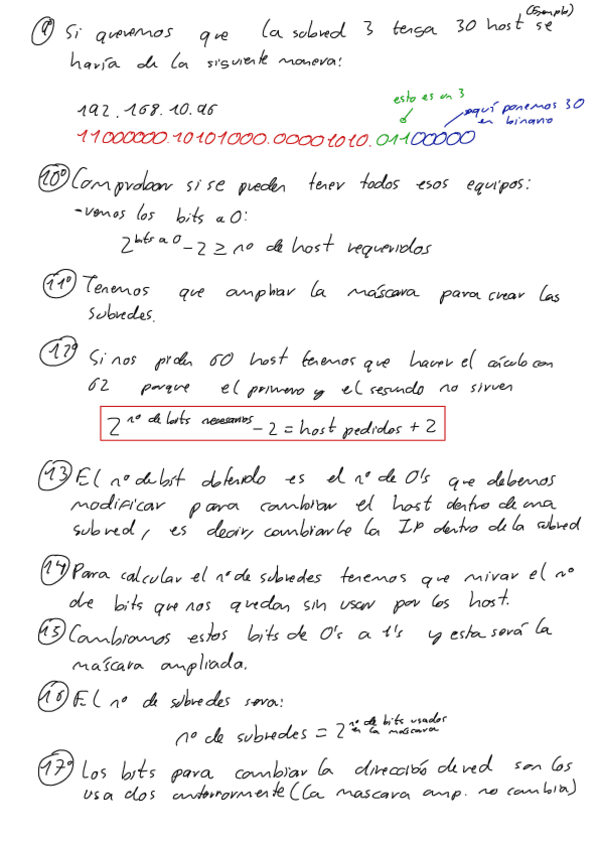 9º Si queremos que la subred 3 tenga 30 host (Ejemplo) se
haría de la siguiente manera:
192.168.10.96
esto es un 3
aquí ponemos 30
en binario
11000000.10101000.00001010.01100000
10º Comprobar si se pueden tener todos esos equipos:
-vemos los bits a 0:
2^bits a 0 - 2 ≥ nº de host requeridos
11º Tenemos que ampliar la máscara para crear las
subredes.
12º Si nos piden 60 host tenemos que hacer el cálculo con
62 porque el primero y el segundo no sirven
2^nº de bits necesarios - 2 = host pedidos + 2
13 El nº de bit obtenido es el nº de 0's que debemos
modificar para cambiar el host dentro de una
subred, es decir, cambiarle la IP dentro de la subred
14 Para calcular el nº de subredes tenemos que mirar el nº
de bits que nos quedan sin usar por los host.
15 Cambiamos estos bits de 0's a 1's y esta será la
máscara ampliada.
16 El nº de subredes sera:
nº de subredes = 2^nº de bits usados en la mascara
17º Los bits para cambiar la dirección de red son los
usados anteriormente (la mascara amp. no cambia)